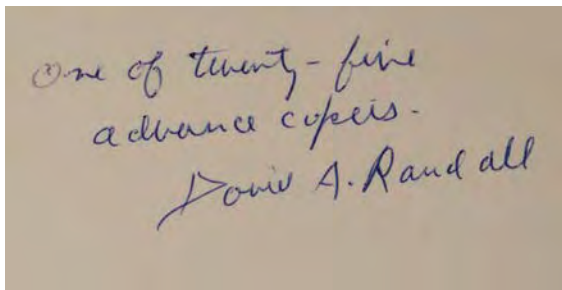 One of twenty-five
advance copeis.
David A. Randall